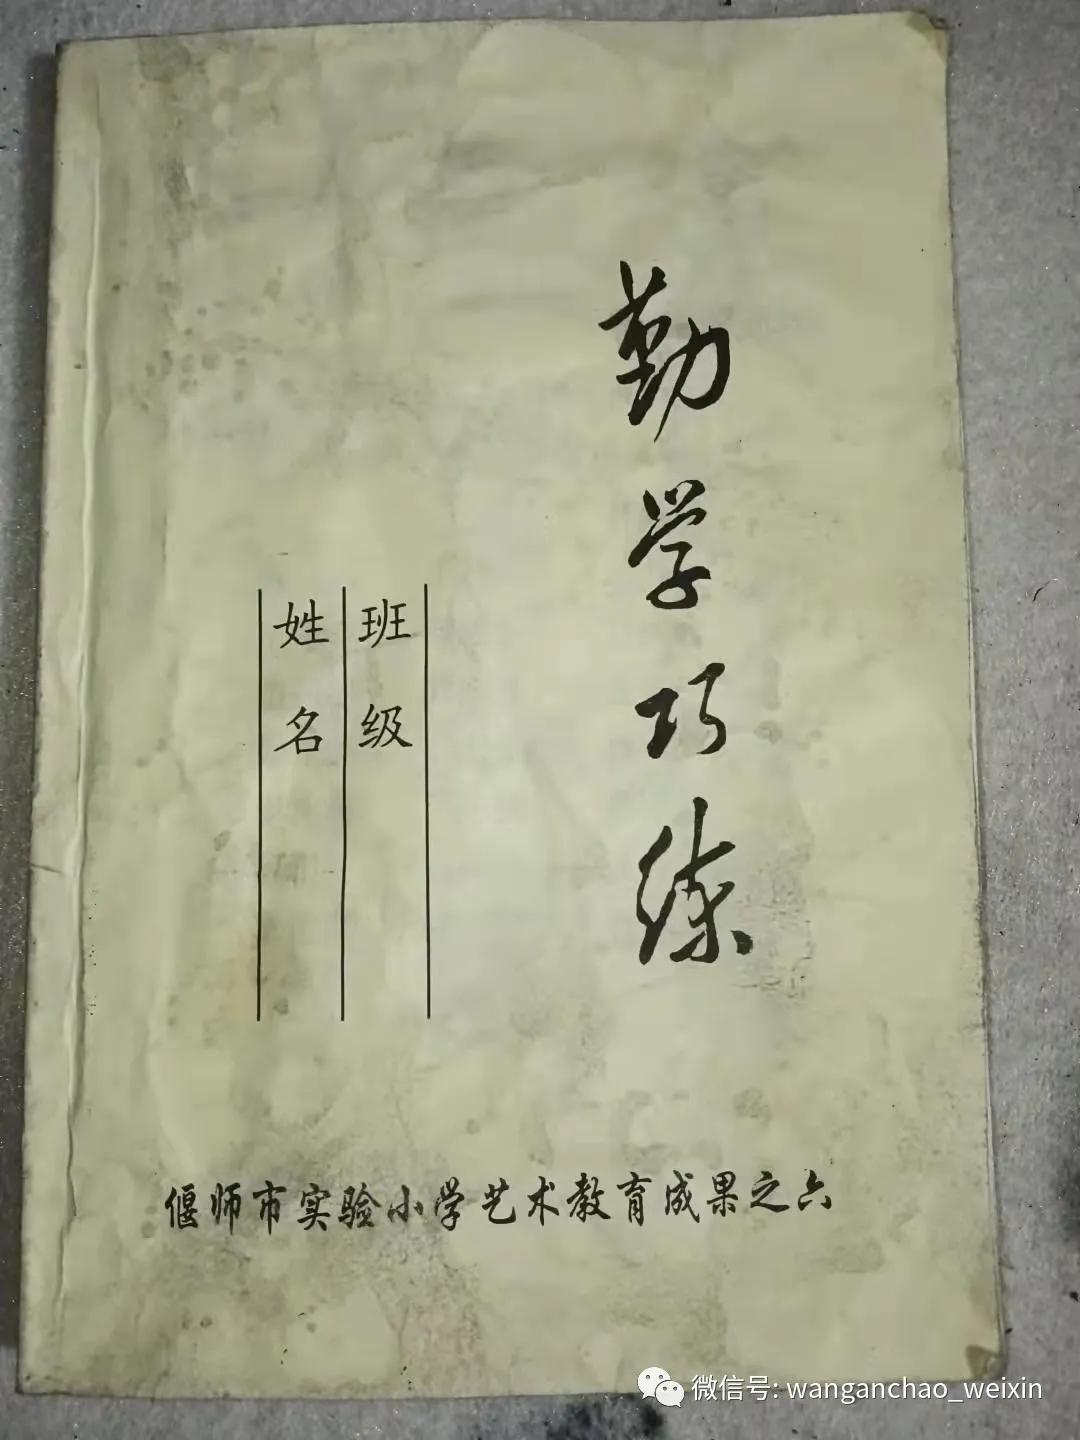 勤学巧练
班级
姓名
偃师市实验小学艺术教育成果之六
微信号: wanganchao_weixin